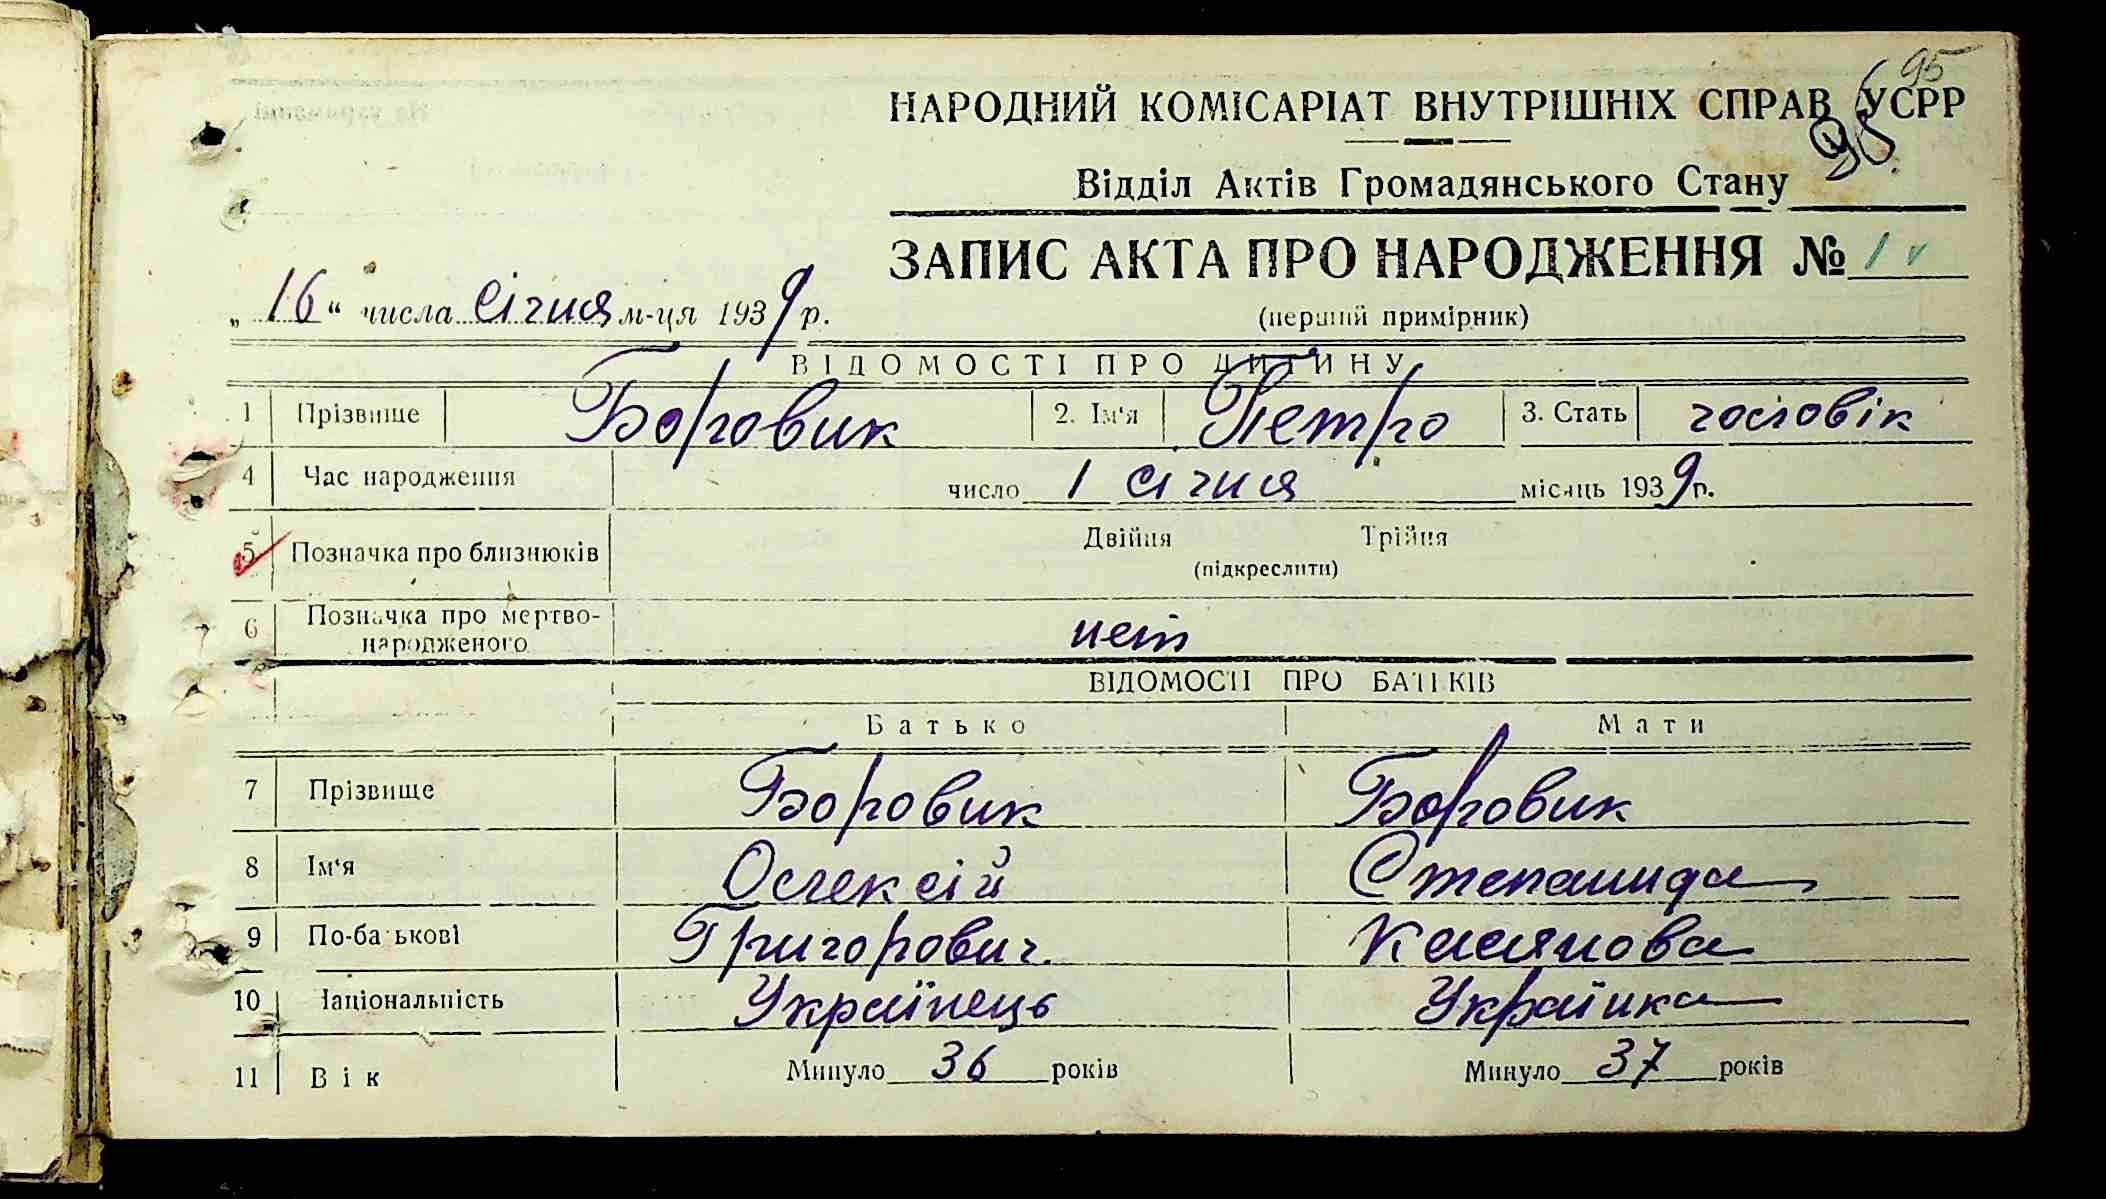 95
НАРОДНИЙ КОМІСАРІАТ ВНУТРІШНІХ СПРАВ УСРР
95
Відділ Актів Громадянського Стану
ЗАПИС АКТА ПРО НАРОДЖЕННЯ № 1
„16“ числа січня м-ця 1939 р.
(перший примірник)
ВІДОМОСТІ ПРО ДИТИНУ
1 Прізвище Боровик 2. Ім'я Петро 3. Стать чоловік
4 Час народження число 1 січня місяць 1939 р.
5 Позначка про близнюків Двійня Трійня
(підкреслити)
6 Позначка про мертво-
народженого нет
ВІДОМОСТІ ПРО БАТЬКІВ
Батько Мати
7 Прізвище Боровик Боровик
8 Ім'я Олексій Степанида
9 По-батькові Григорович. Касянова
10 Національність Українець Українка
11 Вік Минуло 36 років Минуло 37 років